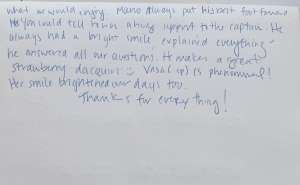 what we would enjoy. Mario always put his best foot forward
You could tell he's a huge support to the captain. He
always had a bright smile explained everything
he answered all our questions. He makes a great
strawberry daiquiri :) Vaso( sp) is phenomenal!
Her smile brightened our days too.
Thanks for everything!